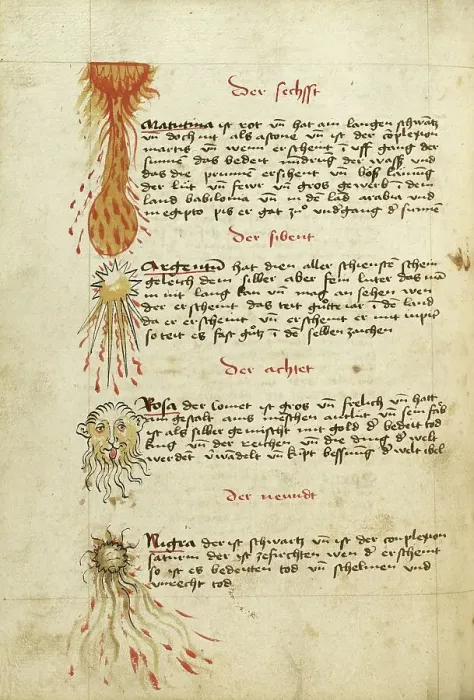 Der sechsst
Matutina ist rot vn̄ hat ain langen schwātz
vn̄ doch nit als astone vn̄ ist der cōplexion
martis vn̄ wenn er scheint ī vff gang der
sunnen das bedeit der wass vnd
das die prunnen erschent vn̄ böß
der lüt vn̄ fewr vn̄ gros ī dem
land babilonia vn̄ in dē lād arabia vnd
in egipto pis er gat zuͦ vndgang d̄ sunnē
Der sibent
Argentū hat dien aller schienstē schein
geleich dem silber aber sein luter das mā
in nit lang kan vn̄ mag an sehen wen
der erscheint das teit guͦtte iar ī dē land
da er erscheint vn̄ erscheint er mit
so teit es fast guͦtz ī dē selben zaichen
Der achtet
Rosa der Comet ist gros vn̄ frelich vn̄ hatt
ain gestalt ains mēschen antlüt vn̄ sein fāb
ist als silber gemischt mit gold d̄ bedeit tod
king vn̄ der reichen vn̄ die ding d̄ welt
werdēt v̄wādelt vn̄ kūpt bessung d̄ welt ibel
Der neundt
Nigra der ist schwartz vn̄ ist der conplexion
saturni der ist zefirchten wen d̄ erscheint
so ist es bedeitten tod vn̄ schelmen vnd
vnrecht tod